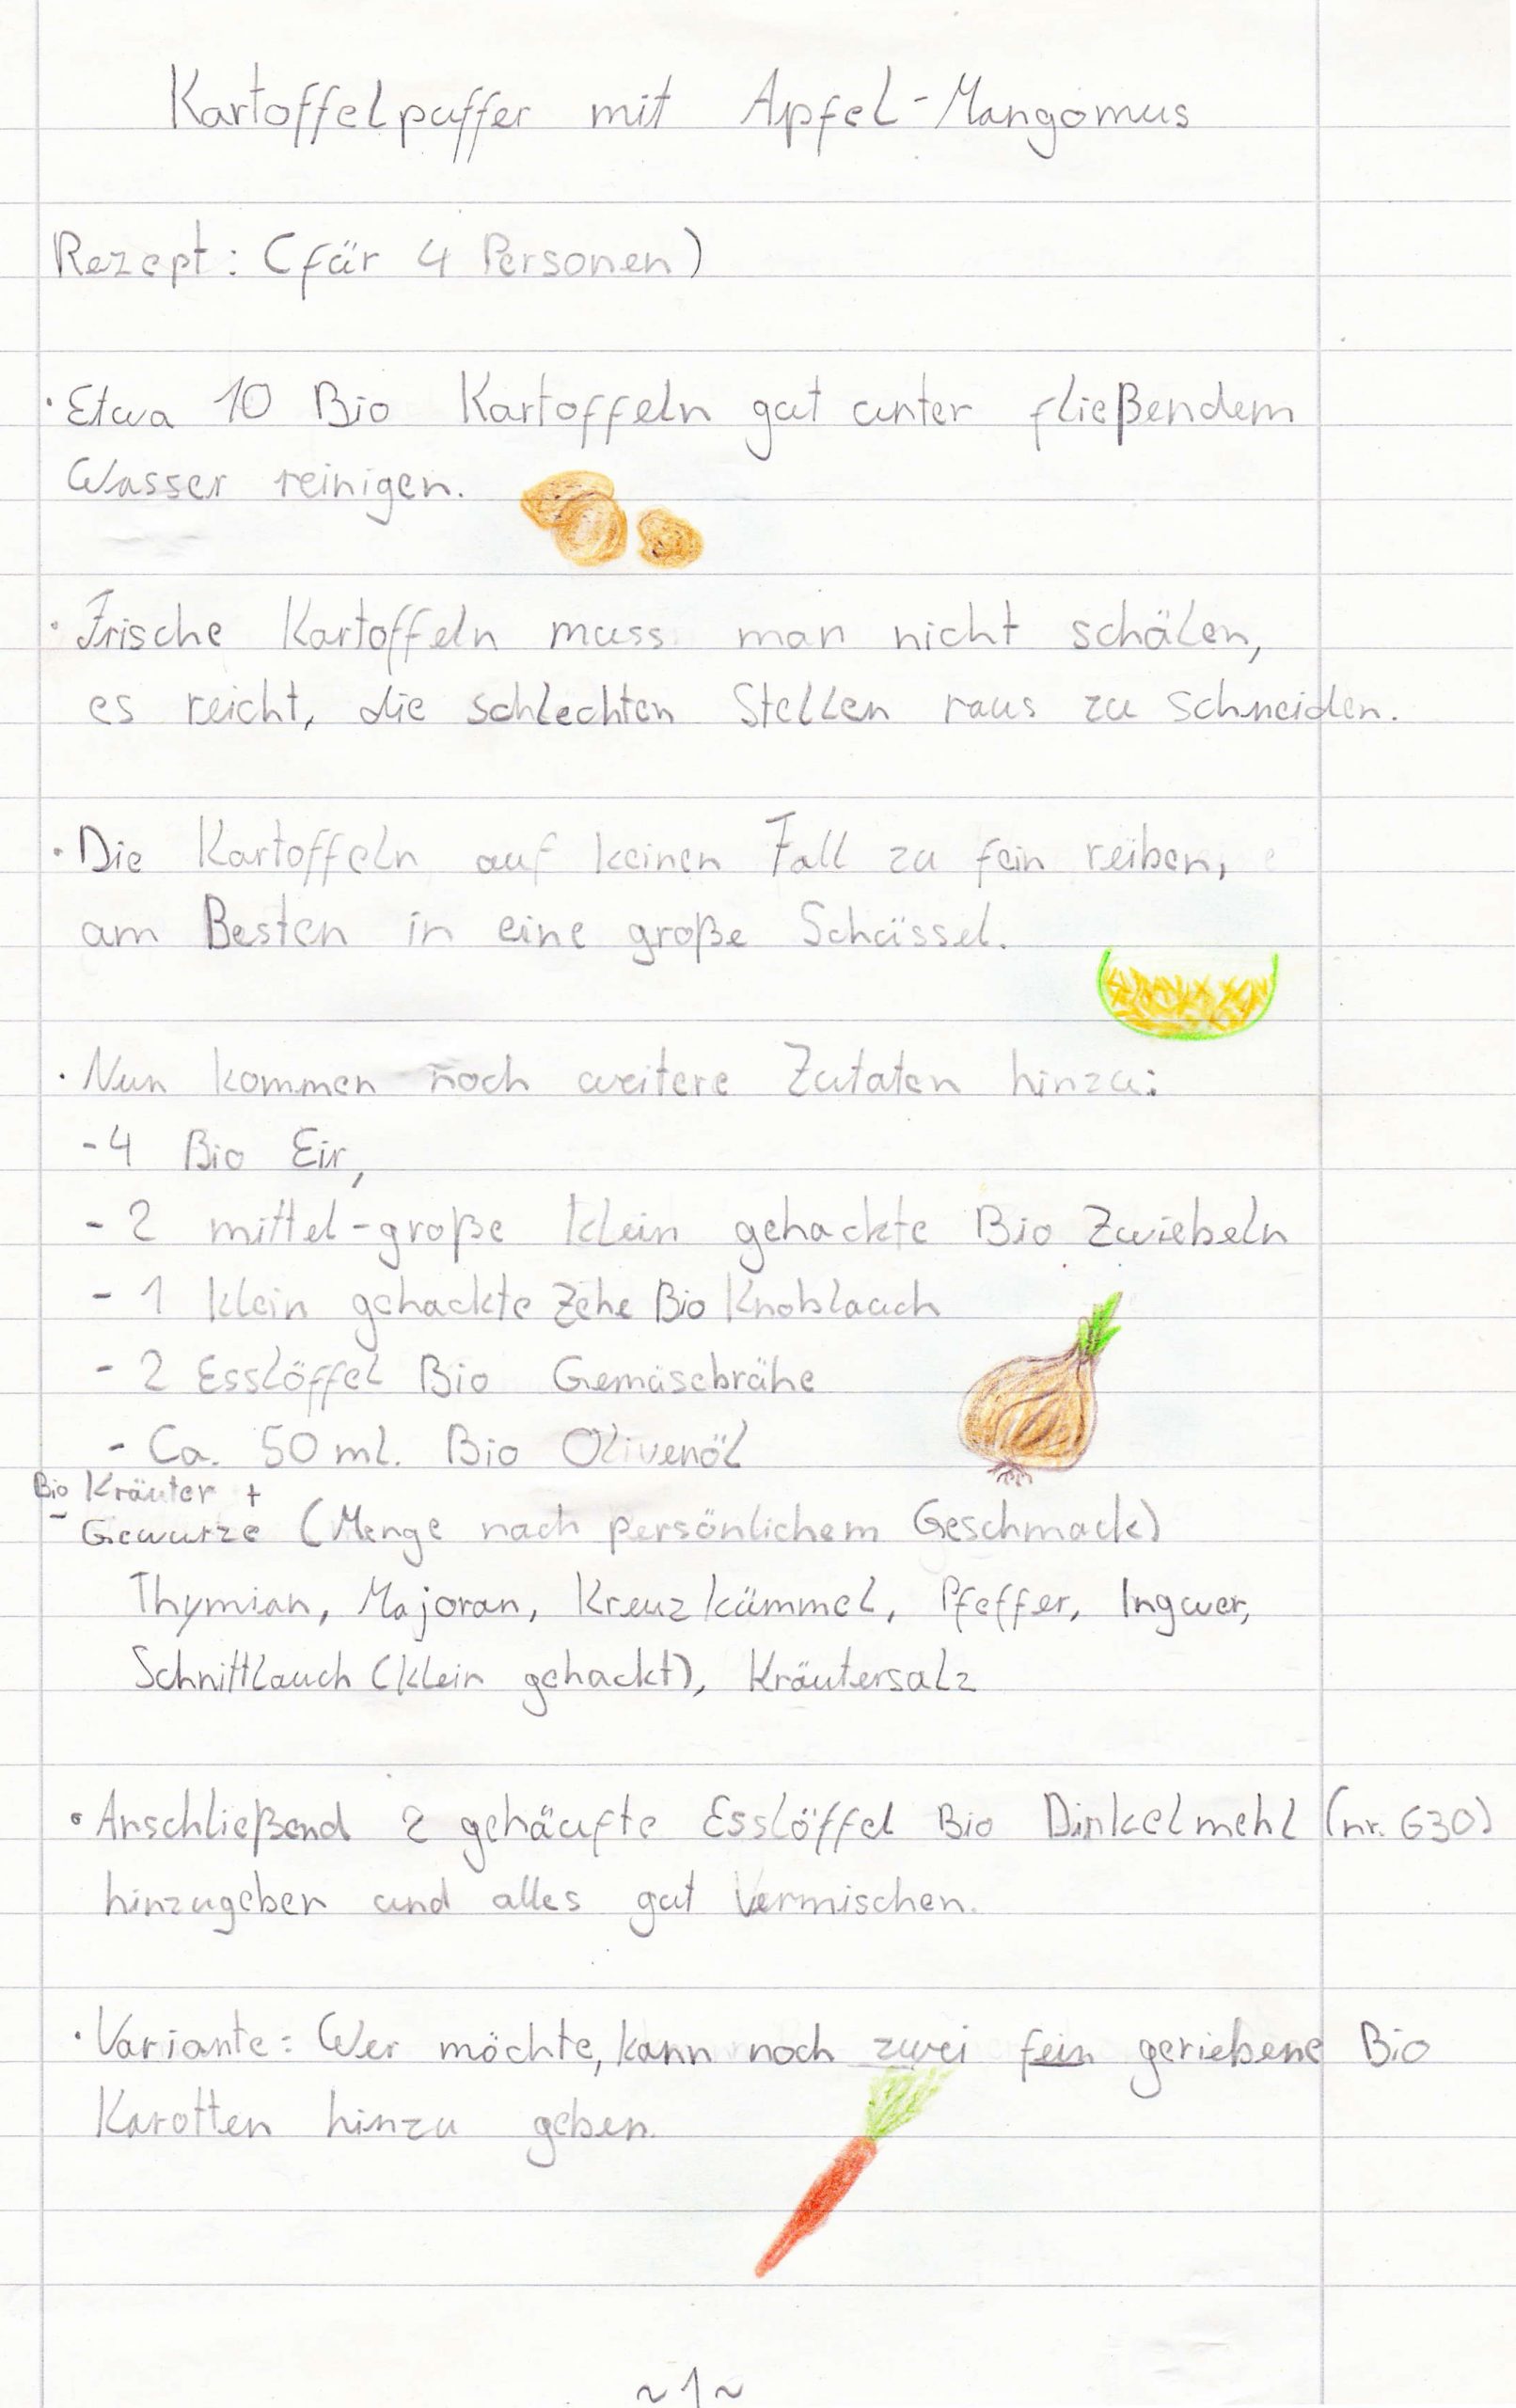 Kartoffelpuffer mit Apfel-Mangomus
Rezept: (für 4 Personen)
· Etwa 10 Bio Kartoffeln gut unter fließendem
Wasser reinigen.
· Frische Kartoffeln muss man nicht schälen,
es reicht, die schlechten Stellen raus zu schneiden.
· Die Kartoffeln auf keinen Fall zu fein reiben,
am Besten in eine große Schüssel.
· Nun kommen noch weitere Zutaten hinzu:
- 4 Bio Eir,
- 2 mittel-große klein gehackte Bio Zwiebeln
- 1 klein gehackte Zehe Bio Knoblauch
- 2 Esslöffel Bio Gemüsebrühe
- Ca. 50 ml. Bio Olivenöl
Bio Kräuter +
- Gewurze (Menge nach persönlichem Geschmack)
Thymian, Majoran, Kreuzkümmel, Pfeffer, Ingwer,
Schnittlauch (klein gehackt), Kräutersalz
· Anschließend 2 gehäufte Esslöffel Bio Dinkelmehl (nr. 630)
hinzugeben und alles gut vermischen.
· Variante: Wer möchte, kann noch zwei fein geriebene Bio
Karotten hinzu geben.
~1~